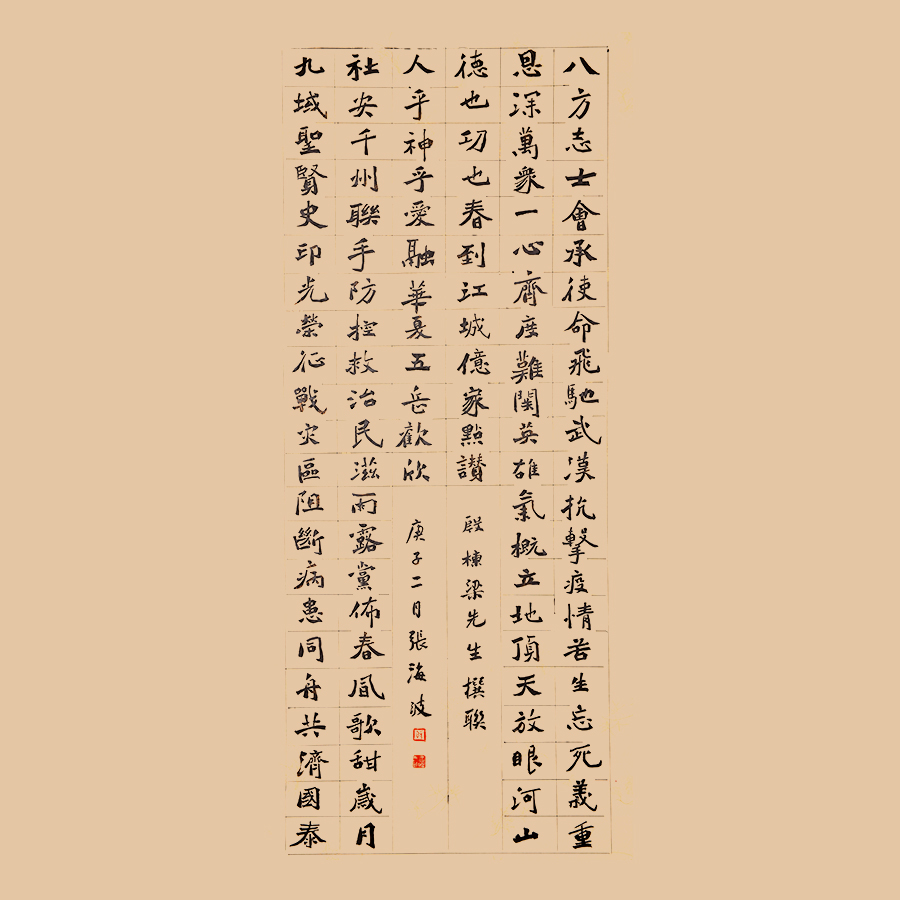 八方志士會承使命飛馳武漢抗擊疫情舍生忘死義重
恩深萬衆一心齊度難關英雄氣概立地頂天放眼河山
德也功也春到江城億家點讚
九域聖賢史印光榮征戰灾區阻斷病患同舟共濟國泰
社安千州聯手防控救治民滋雨露黨佈春風歌甜歲月
人乎神乎愛融華夏五岳歡欣
殷棟梁先生撰聯
庚子二月張海波